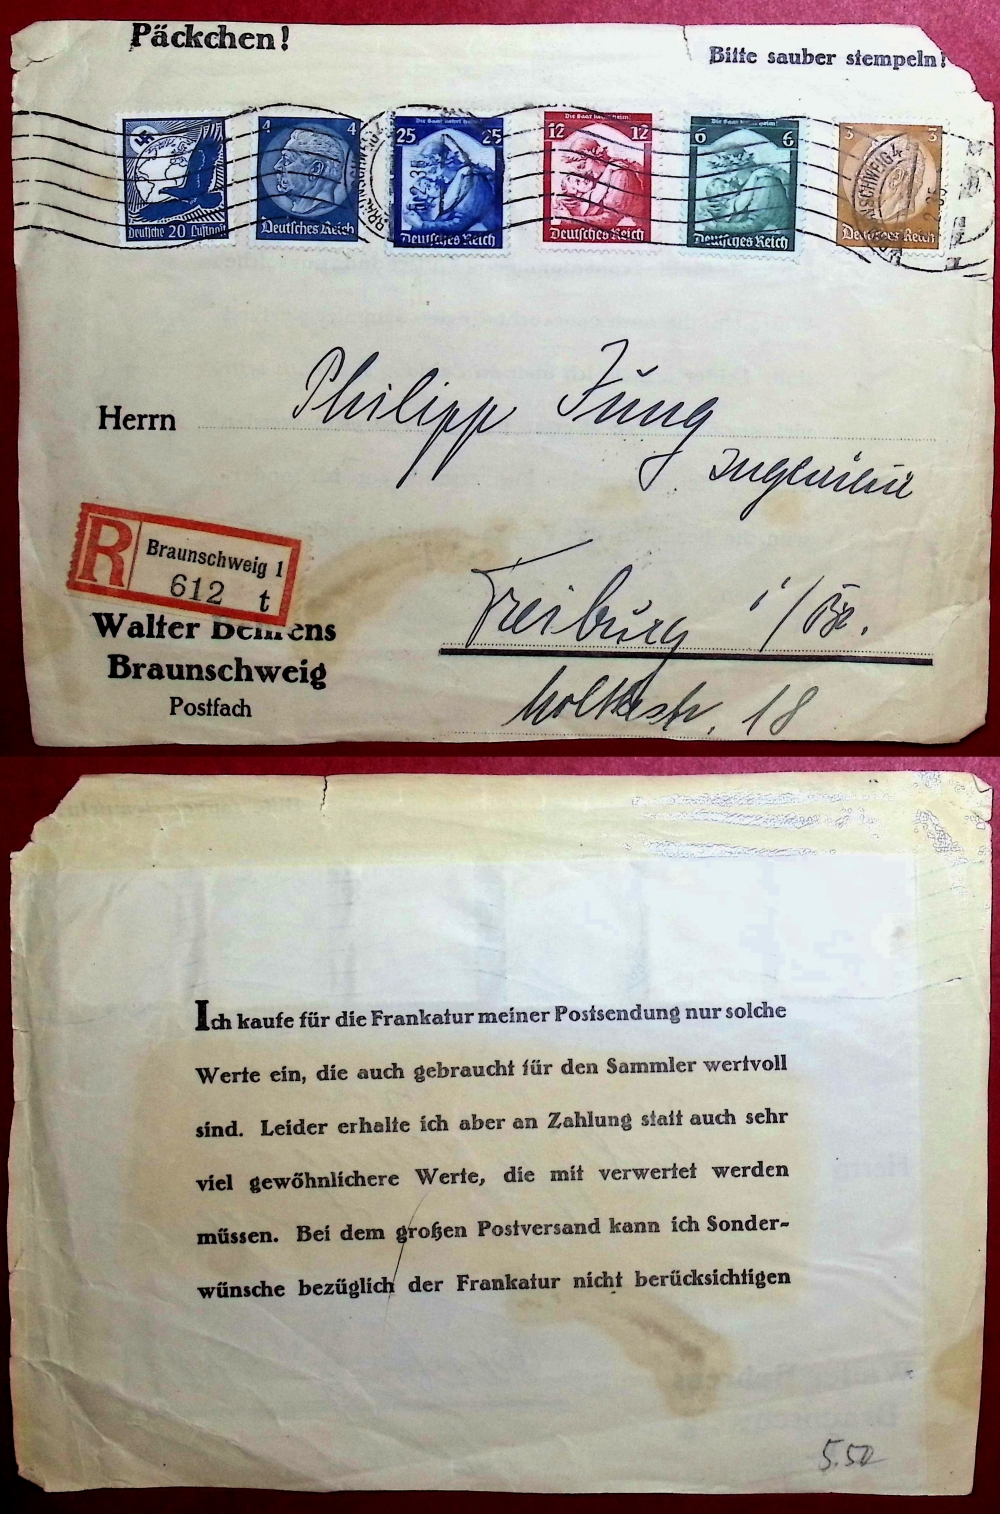 Päckchen!
Bitte sauber stempeln!
Deutsche 20 Luftpost
4 4
Deutsches Reich
25 25
Die Saar kehrt heim!
Deutsches Reich
Die Saar kehrt heim!
12 12
Deutsches Reich
Die Saar kehrt heim!
6 6
Deutsches Reich
3 3
Deutsches Reich
BRAUNSCHWEIG
BRAUNSCHWEIG 4
Herrn Philipp Jung
Ingenieur
R Braunschweig 1
612 t
Freiburg i/Br.
Moltkestr. 18
Walter Behrens
Braunschweig
Postfach
Ich kaufe für die Frankatur meiner Postsendung nur solche
Werte ein, die auch gebraucht für den Sammler wertvoll
sind. Leider erhalte ich aber an Zahlung statt auch sehr
viel gewöhnlichere Werte, die mit verwertet werden
müssen. Bei dem großen Postversand kann ich Sonder-
wünsche bezüglich der Frankatur nicht berücksichtigen
5.50